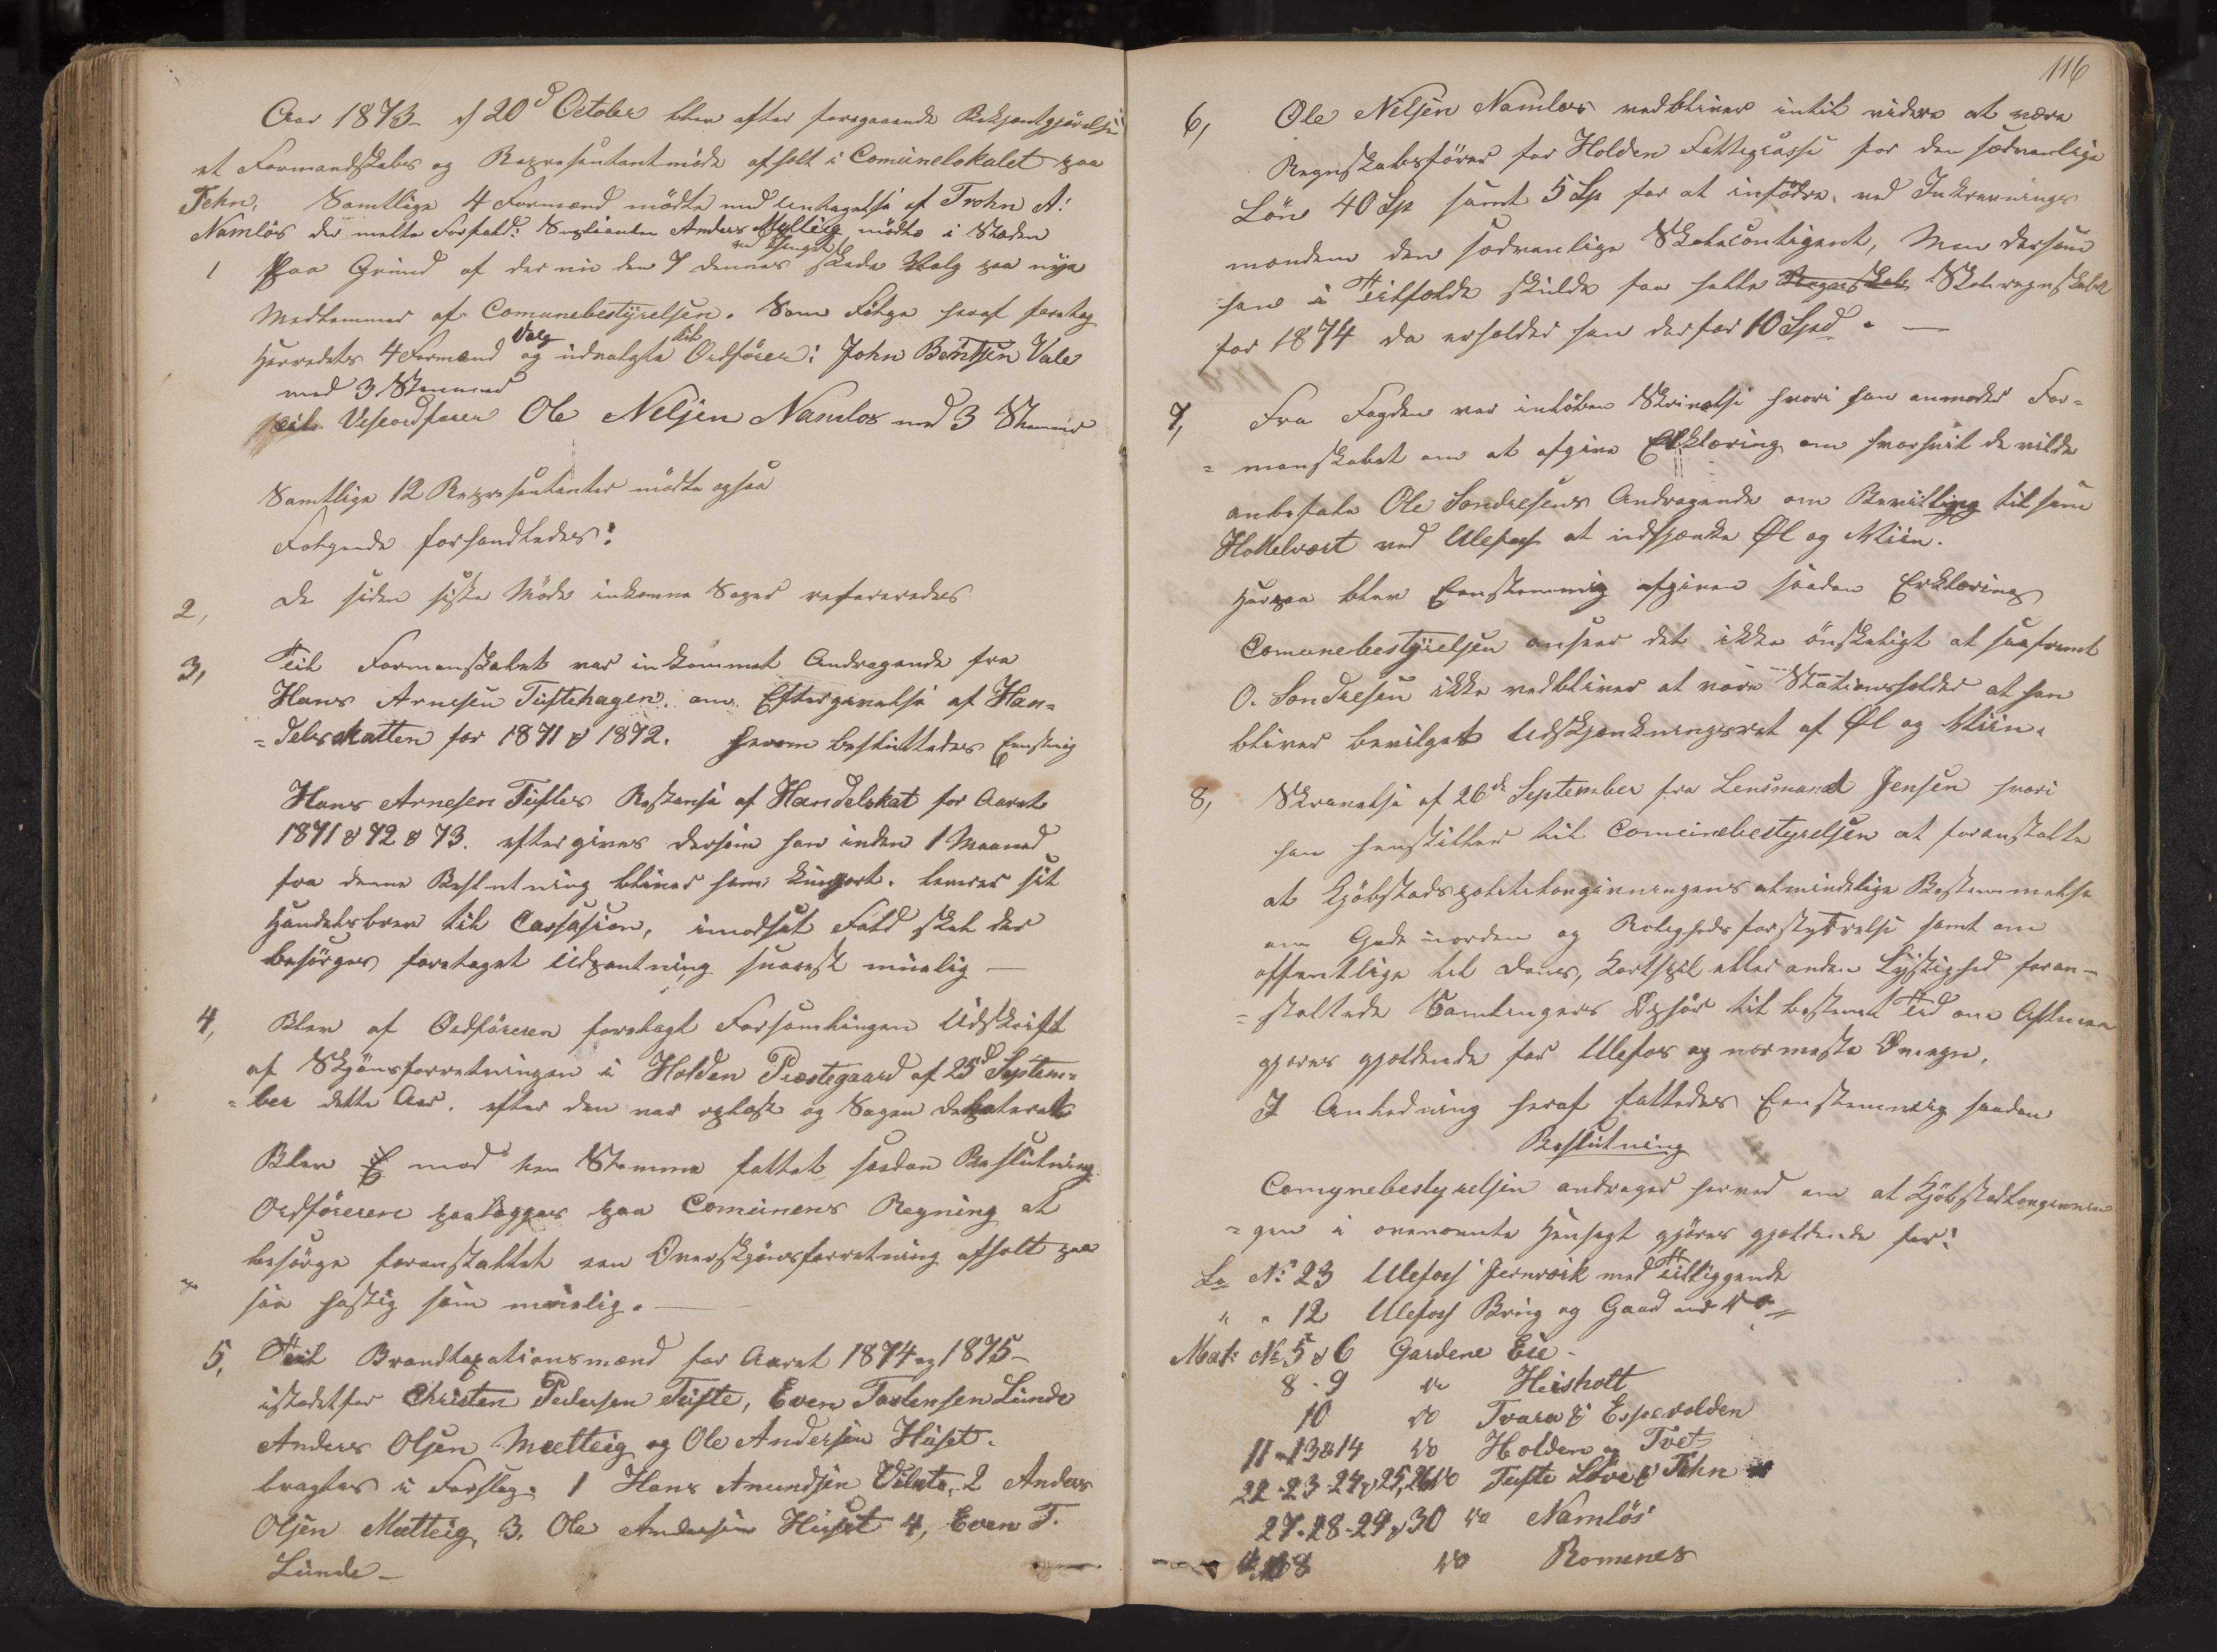 Aar 1873 d 20d October blev efter foregaaende Bekjentgjörelse
et Formandskabs og Repræsentantmöde afholt i Comunelokalet paa
Tehn, Samtlige 4 Formænd mödte med Untagelse af Trohn A:
Namlös der melte Forfald: Suplianten Anders Mælteig mödte i Steden
1 Paa Grund af der nu den 7 dennes ved Thinget skede Valg paa nye
Medlemmer af Comunebestyrelsen. Som Fölge heraf foretog
Herredets 4 Formænd Valg og udvalgte til Ordförer: John Bentsen Vale
med 3 Stemmer
til Viseordförer Ole Nelsen Namlos med 3 Stemmer
Samtlige 12 Repræsentanter mödte ogsaa
Fölgende forhandledes:
2, De siden siste Möde inkomne Sager refereredes
3, Til Formanskabet var inkommet Andragende fra
Hans Arnesen Tuftehagen om Eftergivelse af Han=
=delsskatten for 1871 & 1872. herom besluttedes Eenstmig
Hans Arnesen Tuftes Restanse af Handelskat for Aaret
1871 & 72 & 73. eftergives dersom han inden 1 Maaned
fra denne Beslutning bliver ham kungjort. leverer sit
Handelsbrev til Cassasion, imodsat Fald skal der
besörges foretaget Udpantning snarest muelig —
4, Blev af Ordföreren forelagt Forsamlingen Udskrift
af Skjönsforretningen i Holden Præstegaard af 25d Septem=
=ber dette Aar. efter den var oplæst og Sagen debateret
Blev mod een Stemme fattet saadan Beslutning
Ordföreren paalægges paa Comunens Regning at
besörge foranstaltet een Overskjönsforretning afholt paa
saa hastig som muelig. —
5, Til Brandtaxationsmænd for Aaret 1874 og 1875 -
istedetfor Christen Pedersen Tufte, Even Torstensen Lunde
Anders Olsen Mælteig og Ole Andersen Huset.
bragtes i Forslag. 1 Hans Amundsen Vibeto, 2 Anders
Olsen Mælteig, 3. Ole Andersen Huset 4, Even T.
Lunde -
116
6, Ole Nelsen Namlös vedbliver intil videre at være
Regnskabsförer for Holden Fattigcasse for den sædvanlige
Lön 40 Sp samt 5 Sp for at infödre ved Inkrævnings
mændene den sædvanlige Skolecontigent, Men dersom
han i Tilfælde skulde faa hele Regnskab Skoleregnskabet
for 1874 da erholder han derfor 10 Spd. —
7, Fra Fogden var inlöben Skrivelse hvori han anmoder For=
=manskabet om at afgive Erklæring om hvorvit de vilde
anbefale Ole Sondresens Andragende om Bevilling til som
Hottelvært ved Ulefoss at indskjænke Øl og Viin.
Herpaa blev Eenstemmig afgiven saadan Erklæring
Comunebestyrelsen anseer det ikke önskeligt at saafremt
O. Sondresen ikke vedbliver at være Stationsholder at han
bliver bevilget Udskjænkningsret af Øl og Viin.
8, Skrivelse af 26de September fra Lensmand Jensen hvori
han henstiller til Comunebestyrelsen at foranstalte
at Kjöbstadspolitilovgivningens almindelige Bestemmelse
om Gadeuorden og Rolighedsforstyrrelse samt om
offentlige til Dans, Kortspil eller anden Lystighed foran-
=staltede Samlingers Ophör til bestemt Tid om Aftnen
gjöres gjældende for Ulefos og nærmeste Omegn.
I Anledning heraf fattedes Eenstemmig saadan
Beslutning
Comunebestyrelsen andrager herved om at Kjöbstadlovgivnin
=gen i ovennævnte Hensigt gjöres gjældende for:
Lo No 23 Ulefoss Jernværk med Tilliggende
" " 12 Ulefoss Brug og Gaard med do
Mat: No 5 & 6 Gardene Eie -
8 - 9 do Heisholt
10 do Tvara & Espevolden
11 - 13 & 14 do Holden og Tvet
22 - 23 - 24 & 25, 26 do Tufte Löve & Tehn
27 - 28 - 29 & 30 do Namlös
do Romenes